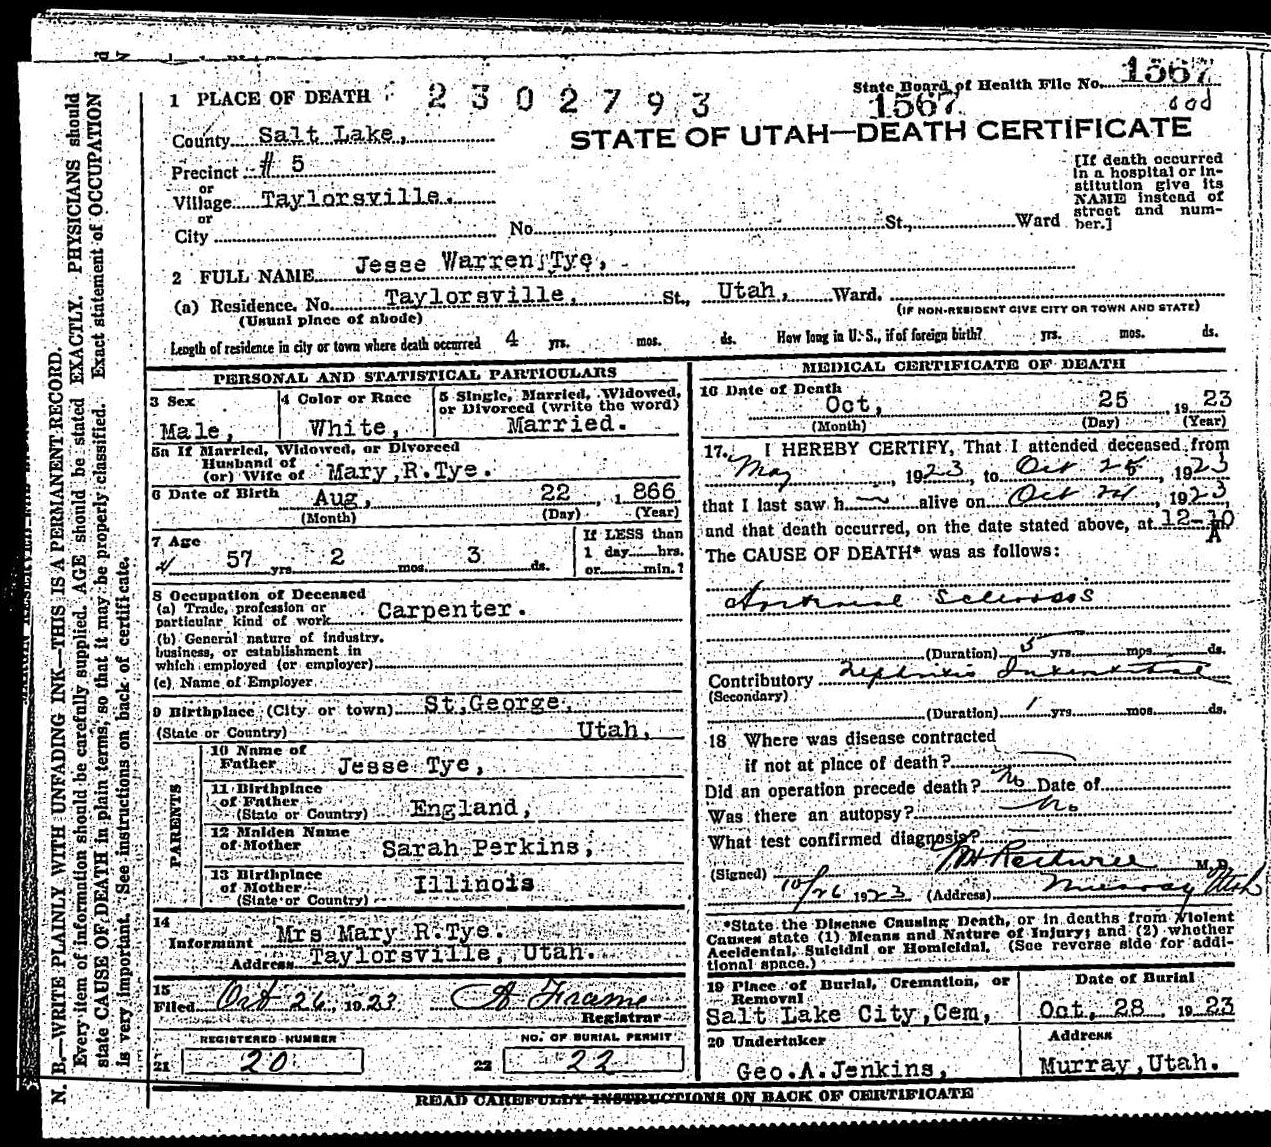 State Board of Health File No. 1567
1 PLACE OF DEATH 2302793 1567
County Salt Lake, STATE OF UTAH—DEATH CERTIFICATE
Precinct # 5
or
Village Taylorsville.
or
City No. St., Ward
[If death occurred
in a hospital or in-
stitution give its
NAME instead of
street and num-
ber.]
2 FULL NAME Jesse Warren Tye,
(a) Residence. No. Taylorsville, St., Utah, Ward.
(Usual place of abode) (IF NON-RESIDENT GIVE CITY OR TOWN AND STATE)
Length of residence in city or town where death occurred 4 yrs. mos. ds. How long in U. S., if of foreign birth? yrs. mos. ds.
PERSONAL AND STATISTICAL PARTICULARS
3 Sex
Male,
4 Color or Race
White,
5 Single, Married, Widowed,
or Divorced (write the word)
Married.
5a If Married, Widowed, or Divorced
Husband of
(or) Wife of Mary R.Tye.
6 Date of Birth Aug, 22, 1866
(Month) (Day) (Year)
7 Age
57 yrs. 2 mos. 3 ds.
If LESS than
1 day hrs.
or min.?
8 Occupation of Deceased
(a) Trade, profession or
particular kind of work Carpenter.
(b) General nature of industry,
business, or establishment in
which employed (or employer)
(c) Name of Employer
9 Birthplace (City or town) St.George,
(State or Country) Utah,
PARENTS
10 Name of
Father Jesse Tye,
11 Birthplace
of Father
(State or Country) England,
12 Maiden Name
of Mother Sarah Perkins,
13 Birthplace
of Mother
(State or Country) Illinois
14
Informant Mrs Mary R.Tye.
Address Taylorsville, Utah.
15
Filed Oct 26, 1923 A Frame
Registrar
REGISTERED NUMBER
21 20
NO. OF BURIAL PERMIT
22 22
MEDICAL CERTIFICATE OF DEATH
16 Date of Death
Oct, 25, 1923
(Month) (Day) (Year)
17. I HEREBY CERTIFY, That I attended deceased from
May, 1923, to Oct 25, 1923
that I last saw h alive on Oct 24, 1923,
and that death occurred, on the date stated above, at 12-10 A m.
The CAUSE OF DEATH* was as follows:
Sclerosis
(Duration) 5 yrs. mos. ds.
Contributory Nephritis
(Secondary)
(Duration) 1 yrs. mos. ds.
18 Where was disease contracted
if not at place of death?
Did an operation precede death? No Date of
Was there an autopsy? No
What test confirmed diagnosis?
(Signed) M. D.
10/26 1923 (Address) Murray Utah
*State the Disease Causing Death, or in deaths from Violent
Causes state (1) Means and Nature of Injury; and (2) whether
Accidental, Suicidal or Homicidal. (See reverse side for addi-
tional space.)
19 Place of Burial, Cremation, or
Removal
Salt Lake City,Cem,
Date of Burial
Oct, 28, 1923
20 Undertaker
Geo.A.Jenkins,
Address
Murray,Utah.
READ CAREFULLY INSTRUCTIONS ON BACK OF CERTIFICATE
N. B.—WRITE PLAINLY WITH UNFADING INK—THIS IS A PERMANENT RECORD.
Every item of information should be carefully supplied. AGE should be stated EXACTLY. PHYSICIANS should
state CAUSE OF DEATH in plain terms, so that it may be properly classified. Exact statement of OCCUPATION
is very important. See instructions on back of certificate.